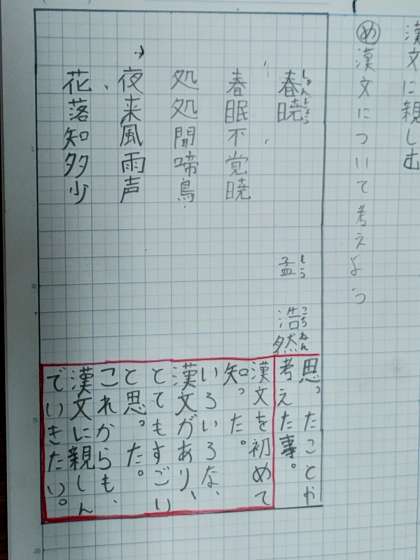 漢文に親しむ
め 漢文について考えよう
春暁 孟 浩然
春眠不覚暁
処処聞啼鳥
夜来風雨声
花落知多少
思ったことか
考えた事。
漢文を初めて
知った。
いろいろな、
漢文があり、
とてもすごい
と思った。
これからも、
漢文に親しん
でいきたい。